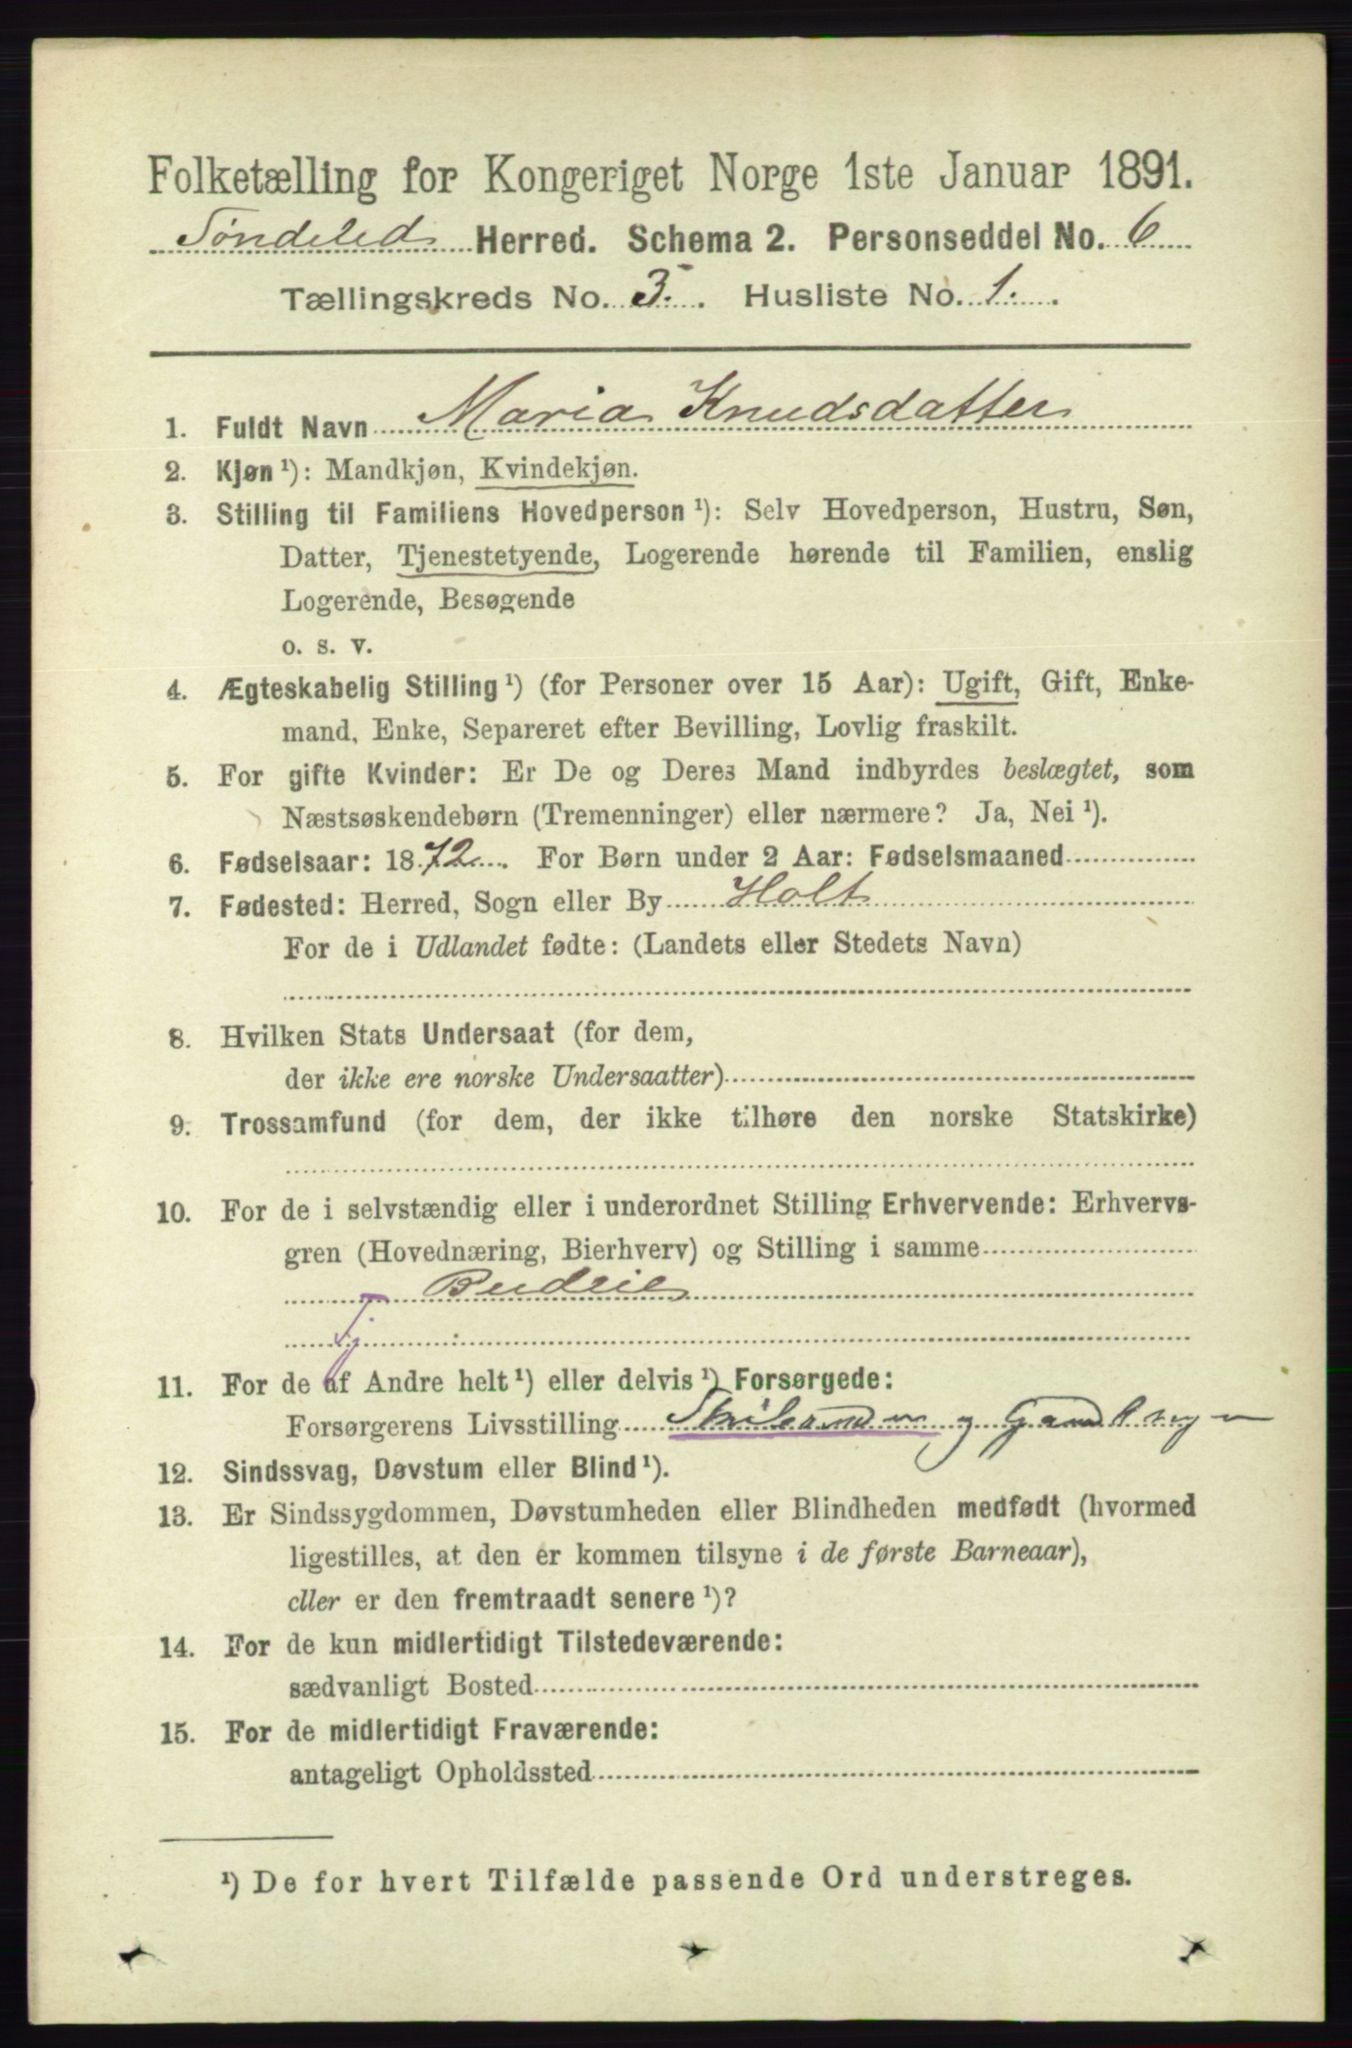 Folketælling for Kongeriget Norge 1ste Januar 1891.
Søndeled Herred. Schema 2. Personseddel No. 6
Tællingskreds No. 3. Husliste No. 1.
1. Fuldt Navn Maria Knudsdatter
2. Kjøn¹): Mandkjøn, Kvindekjøn.
3. Stilling til Familiens Hovedperson¹): Selv Hovedperson, Hustru, Søn,
Datter, Tjenestetyende, Logerende hørende til Familien, enslig
Logerende, Besøgende
o. s. v.
4. Ægteskabelig Stilling¹) (for Personer over 15 Aar): Ugift, Gift, Enke-
mand, Enke, Separeret efter Bevilling, Lovlig fraskilt.
5. For gifte Kvinder: Er De og Deres Mand indbyrdes beslægtet, som
Næstsøskendebørn (Tremenninger) eller nærmere? Ja, Nei¹).
6. Fødselsaar: 1872. For Børn under 2 Aar: Fødselsmaaned
7. Fødested: Herred, Sogn eller By Holt
For de i Udlandet fødte: (Landets eller Stedets Navn)
8. Hvilken Stats Undersaat (for dem,
der ikke ere norske Undersaatter)
9. Trossamfund (for dem, der ikke tilhøre den norske Statskirke)
10. For de i selvstændig eller i underordnet Stilling Erhvervende: Erhvervs-
gren (Hovednæring, Bierhverv) og Stilling i samme
Budeie
Tj
11. For de af Andre helt¹) eller delvis¹) Forsørgede:
Forsørgerens Livsstilling
12. Sindssvag, Døvstum eller Blind¹).
13. Er Sindssygdommen, Døvstumheden eller Blindheden medfødt (hvormed
ligestilles, at den er kommen tilsyne i de første Barneaar),
eller er den fremtraadt senere¹)?
14. For de kun midlertidigt Tilstedeværende:
sædvanligt Bosted
15. For de midlertidigt Fraværende:
antageligt Opholdssted
¹) De for hvert Tilfælde passende Ord understreges.